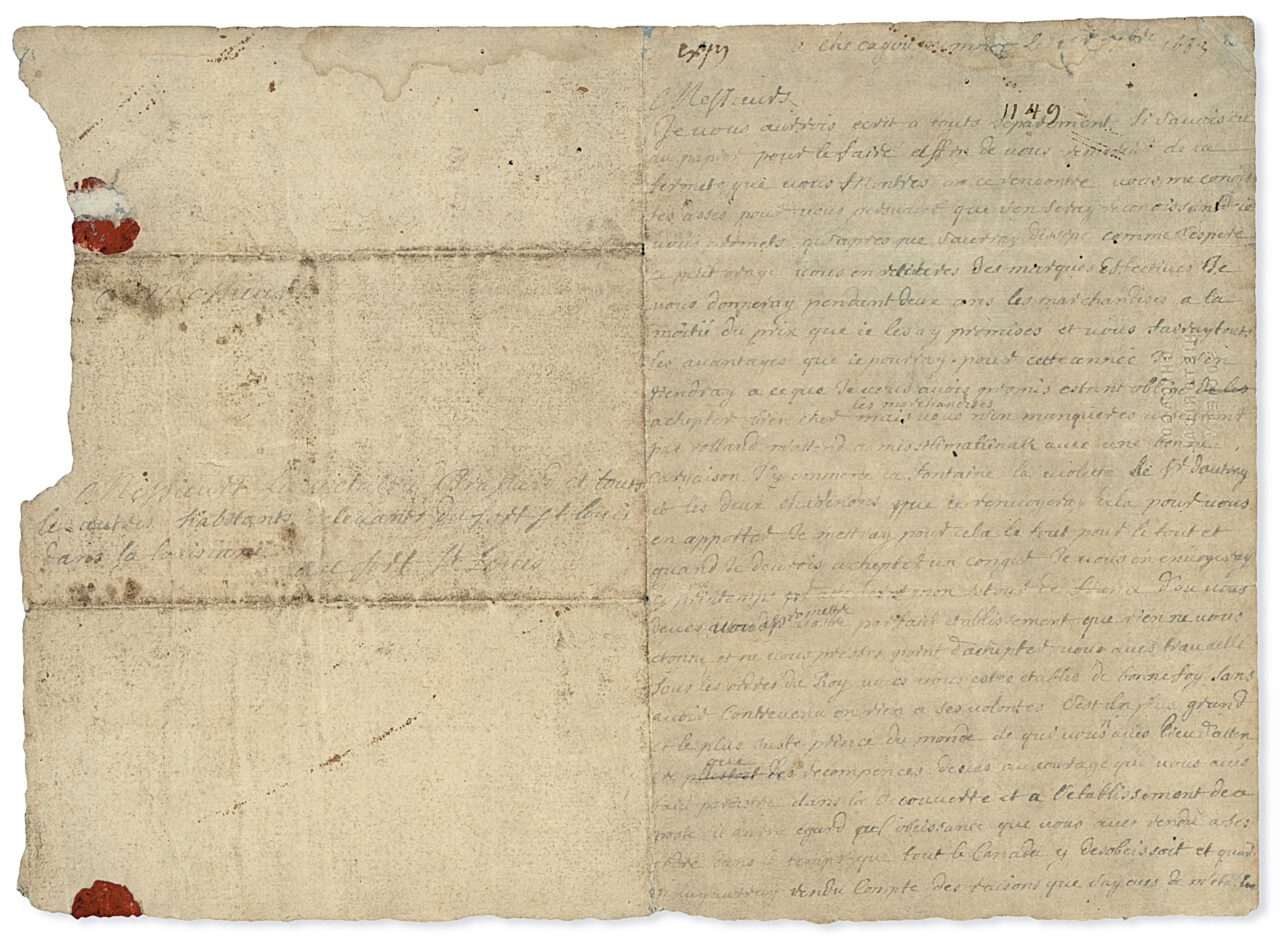 a Messieurs
a Messieurs et touts
les autres habitants relevants du fort st. louis
dans la louisiane
au fort st Louis
exp
Checagou 1683
1149
Messieurs
Je vous aurois ecrit a touts separement si javois eu
du papier pour le faire affin de vous remercier de la
fermete que vous Montres en ce rencontre vous me connois
ses asses pour vous persuader que j'en seray reconoissant ie
vous promets qu'apres que j'auray dissipé comme J'espere
ce petit orage vous en des marques effectives Je
vous donneray pendent deux ans les marchandises a la
moitié du prix que ie les ay promises et vous fairay touts
les avantages que ie pourray. pour cette année Je m'en
tiendray a ceque Je vous avois promis estant obligé de les
les marchandises
achepter bien cher mais vous n'en manqueres
pas rolland m'attend a missilimakinak avec une bonne
cargaison J'y emmene la fontaine la violette le Sr d'autray
et les deux que ie renvoyeray pour vous
en apporter Je mettray pour cela le tout pour le tout et
quand Je devrois achepter un congé Je vous en envoyeray
ce printemps mon retour de d'ou vous
promettre
deves vostre parfait etablissement que rien ne vous
etonne et ne vous presses point d'achepter vous aves travaillé
sous les ordres du Roy vous vous estes etablis de bonne foy sans
avoir contrevenu en rien a ses volontes C'est le plus grand
et le plus juste prince du monde de qui vous aves lieu d'atten
que
dre des recompences deues au courage que vous aves
fait paroitre dans la decouverte et a l'etablissement de ce
poste il aura egard a l'obeissance que vous aves rendu a ses
dans le temps que tout le Canada y desobeissoit et quand
auray rendu Compte des raisons que j'ay eues de